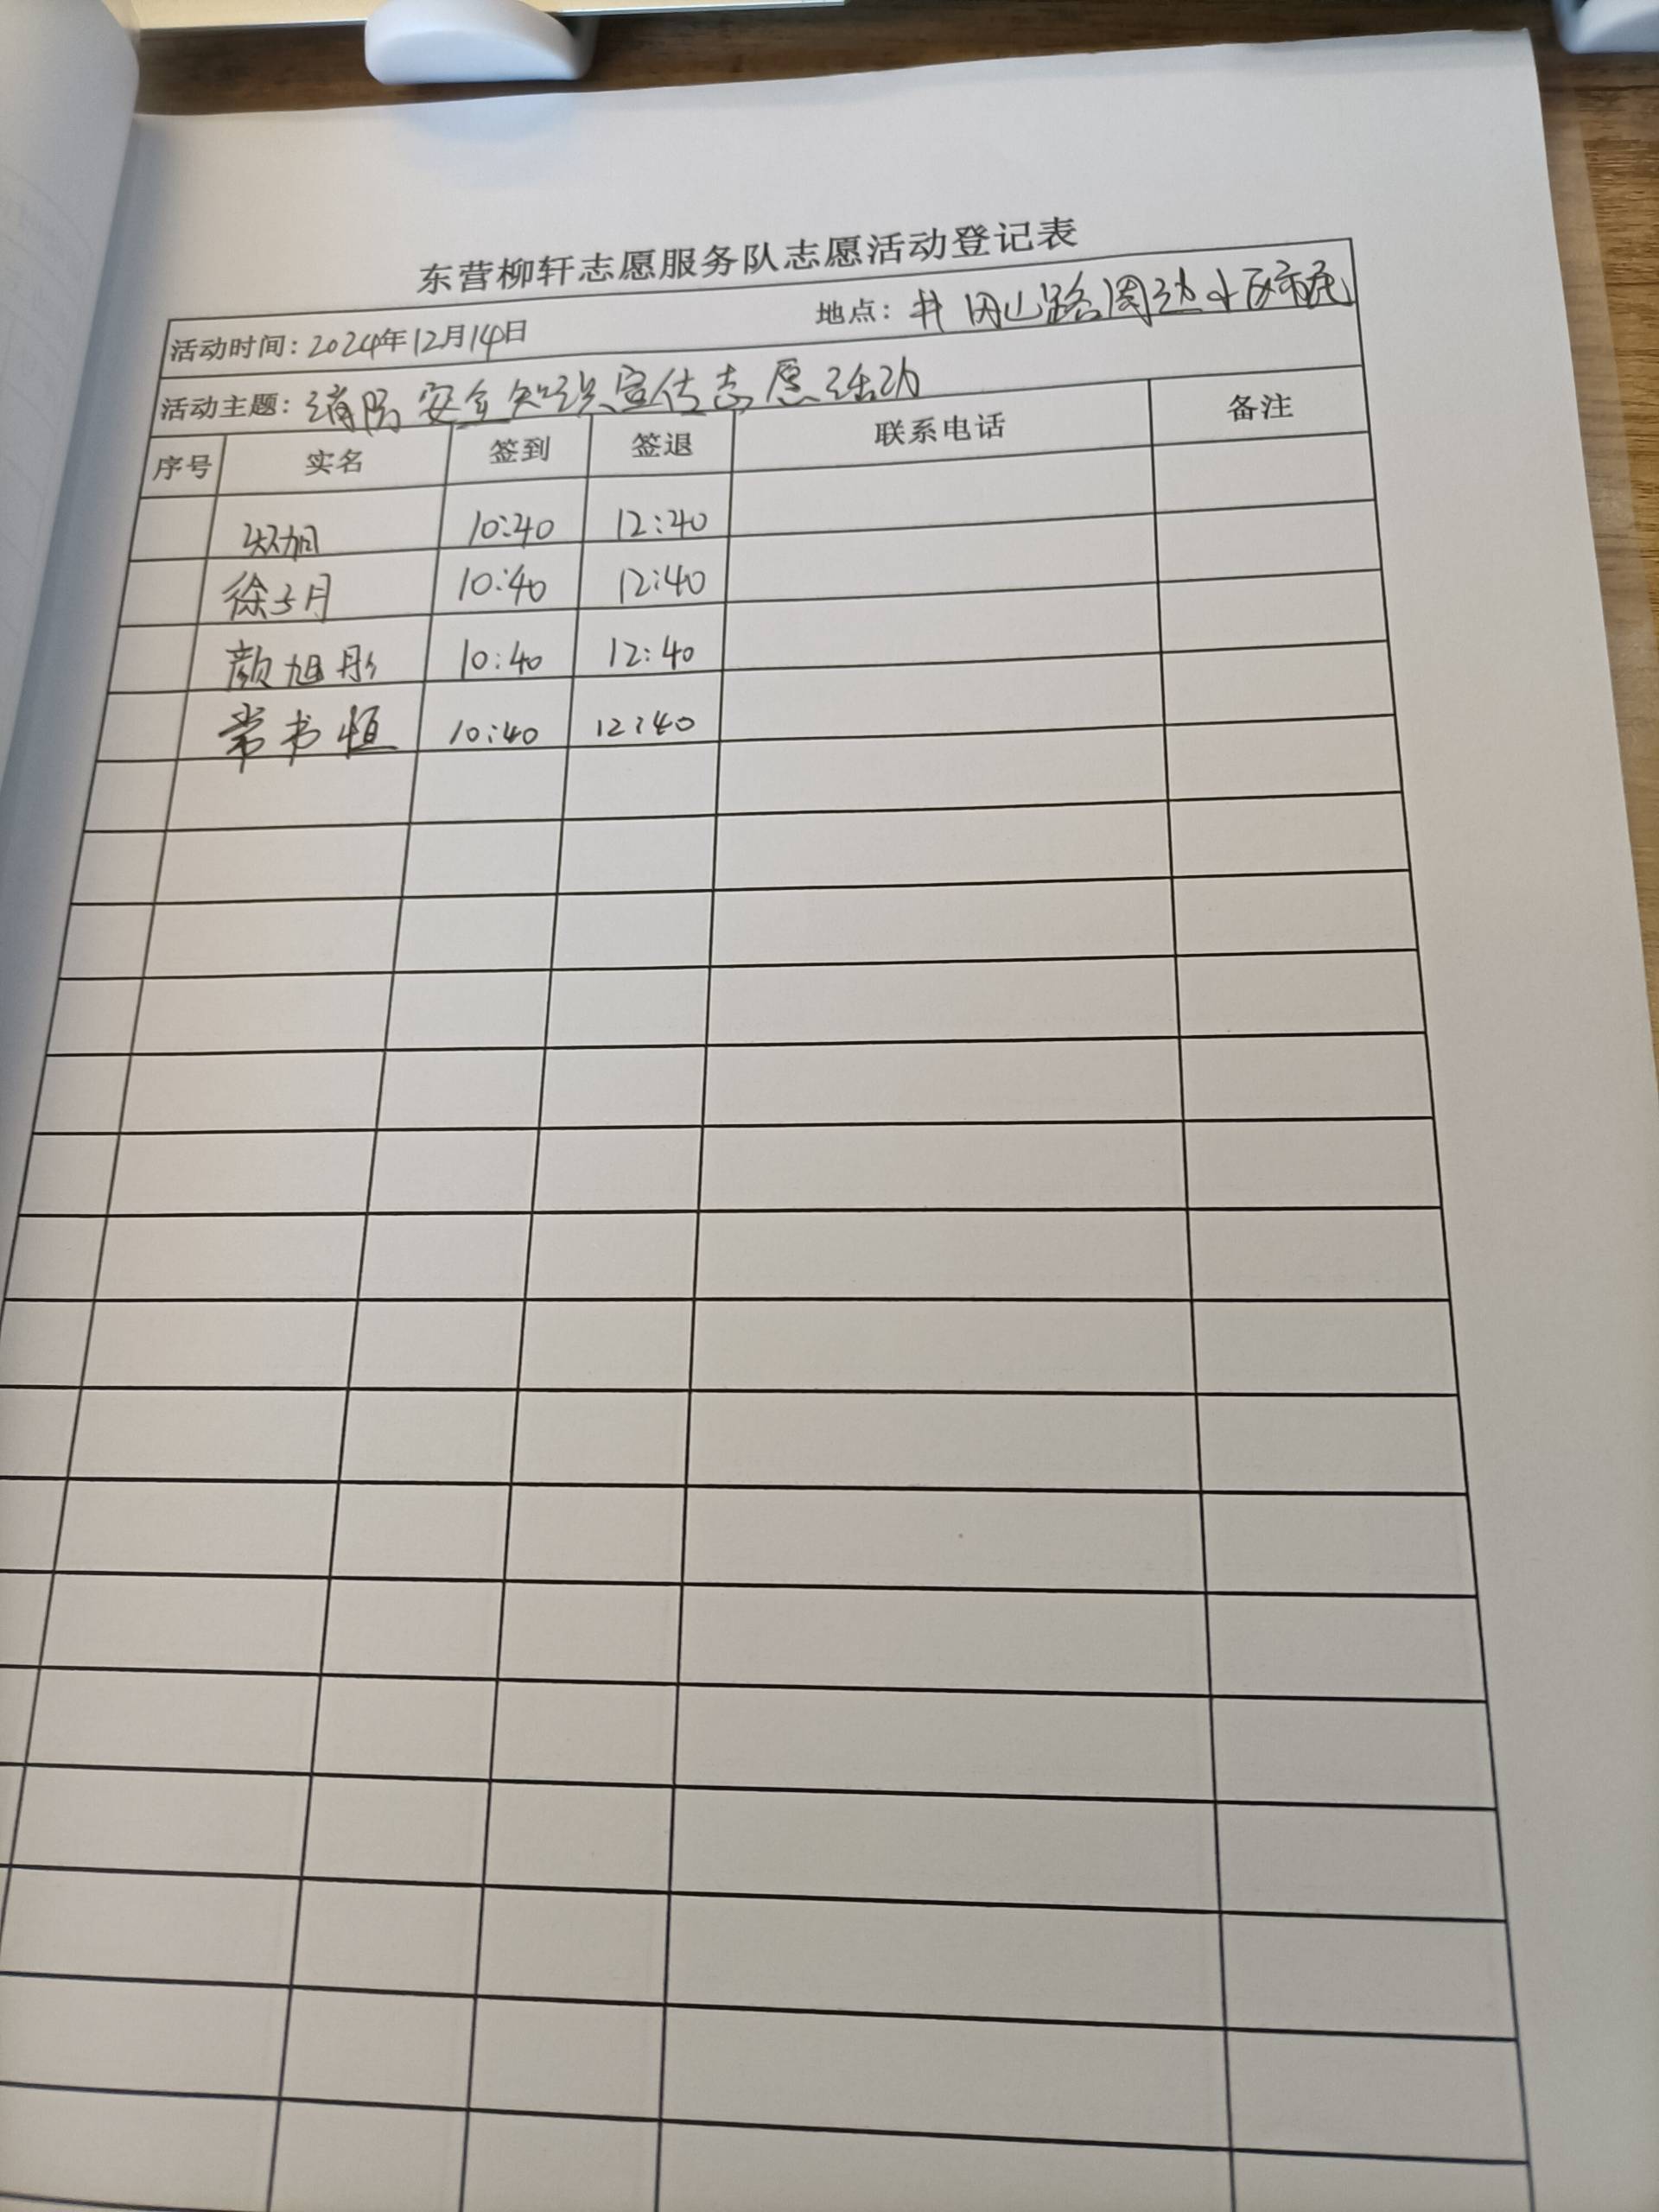 东营柳轩志愿服务队志愿活动登记表
活动时间：2024年12月14日 地点：井冈山路周边小区市民
活动主题：消防安全知识宣传志愿活动
序号 实名 签到 签退 联系电话 备注
10:40 12:40
徐子月 10:40 12:40
颜旭彤 10:40 12:40
常书恒 10:40 12:40